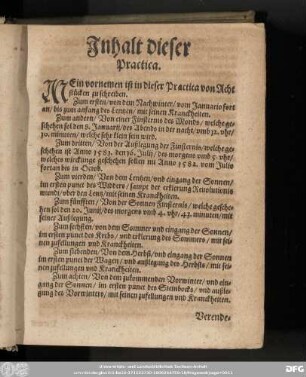 Inhalt dieser
Practica.
MEin vornemen ist in dieser Practica von Acht
stücken zuschreiben.
Zum ersten / von dem Nachwinter / vom Januario fort
an / bis zum anfang des Lentzen / mit seinen Kranckheiten.
Zum andern / Von einer Finsternis des Monds / welche ge-
schehen sol den 8. Januarij / des Abends in der nacht / umb 12. vhr /
30. minuten / welche sehr klein sein wird.
Zum dritten / Von der Außlegung der Finsternis / welche ge-
schehen ist Anno 1581. den 16. Julij / des morgens umb 5 vhr /
welches wirckunge geschehen sollen im Anno 1582. vom Julio
fort an bis in Octob.
Zum vierden / Von dem Lentzen / und eingang der Sonnen /
im ersten punct des Widders / sampt der erklerung Revolutionis
mundi / uber den Lentz / mit seinen Kranckheiten.
Zum fünfften / Von der Sonnen Finsternis / welche gesche-
hen sol den 20. Junij / des morgens umb 4. vhr / 43. minuten / mit
seiner Außlegung.
Zum sechsten / von dem Sommer und eingang der Sonnen /
im ersten punct des Krebs / und erklerung des Sommers / mit sei-
nen zufellungen und Kranckheiten.
Zum siebenden / Von dem Herbst / und eingang der Sonnen /
im ersten punct der Wagen / und außlegung des Herbsts / mit sei-
nen zufellungen und Kranckheiten.
Zum achten / Von dem zukommenden Vorwinter / und ein-
gang der Sonnen / im ersten punct des Steinbocks / und außle-
gung des Vorwinters / mit seinen zufellungen und Kranckheiten.
Verende-